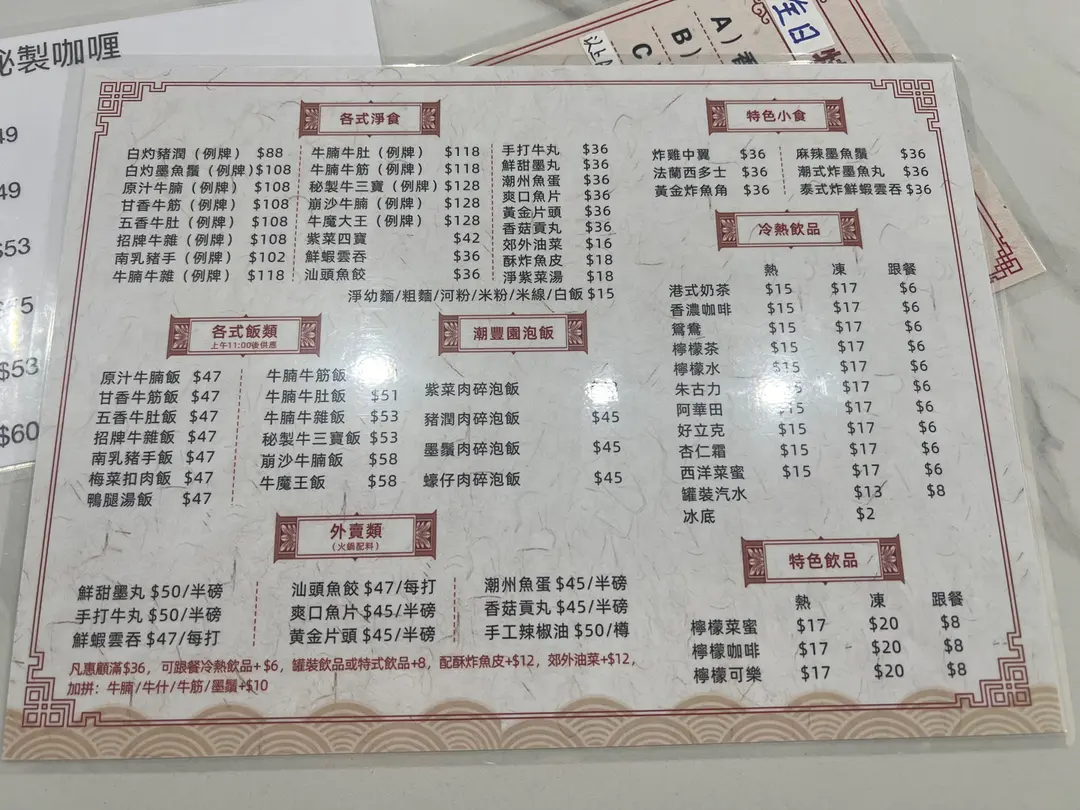 製咖喱
49
49
$53
$53
$60
以上
A)
B)
C
各式淨食
白灼豬潤（例牌） $88
白灼墨魚鬚（例牌） $108
原汁牛腩（例牌） $108
甘香牛筋（例牌） $108
五香牛肚（例牌） $108
招牌牛雜（例牌） $108
南乳豬手（例牌） $102
牛腩牛雜（例牌） $118
牛腩牛肚（例牌） $118
牛腩牛筋（例牌） $118
秘製牛三寶（例牌） $128
崩沙牛腩（例牌） $128
牛魔大王（例牌） $128
紫菜四寶 $42
鮮蝦雲吞 $36
汕頭魚餃 $36
手打牛丸 $36
鮮甜墨丸 $36
潮州魚蛋 $36
爽口魚片 $36
黃金片頭 $36
香菇貢丸 $36
郊外油菜 $16
酥炸魚皮 $18
淨紫菜湯 $18
淨幼麵/粗麵/河粉/米粉/米線/白飯 $15
特色小食
炸雞中翼 $36
法蘭西多士 $36
黃金炸魚角 $36
麻辣墨魚鬚 $36
潮式炸墨魚丸 $36
泰式炸鮮蝦雲吞 $36
各式飯類
上午11:00後供應
原汁牛腩飯 $47
甘香牛筋飯 $47
五香牛肚飯 $47
招牌牛雜飯 $47
南乳豬手飯 $47
梅菜扣肉飯 $47
鴨腿湯飯 $47
牛腩牛筋飯
牛腩牛肚飯 $51
牛腩牛雜飯 $53
秘製牛三寶飯 $53
崩沙牛腩飯 $58
牛魔王飯 $58
潮豐園泡飯
紫菜肉碎泡飯
豬潤肉碎泡飯 $45
墨鬚肉碎泡飯 $45
蠔仔肉碎泡飯 $45
冷熱飲品
熱 凍 跟餐
港式奶茶 $15 $17 $6
香濃咖啡 $15 $17 $6
鴛鴦 $15 $17 $6
檸檬茶 $15 $17 $6
檸檬水 $15 $17 $6
朱古力 $17 $6
阿華田 $15 $17 $6
好立克 $15 $17 $6
杏仁霜 $15 $17 $6
西洋菜蜜 $15 $17 $6
罐裝汽水 $13 $8
冰底 $2
外賣類
（火鍋配料）
鮮甜墨丸 $50/半磅
手打牛丸 $50/半磅
鮮蝦雲吞 $47/每打
汕頭魚餃 $47/每打
爽口魚片 $45/半磅
黃金片頭 $45/半磅
潮州魚蛋 $45/半磅
香菇貢丸 $45/半磅
手工辣椒油 $50/樽
特色飲品
熱 凍 跟餐
檸檬菜蜜 $17 $20 $8
檸檬咖啡 $17 $20 $8
檸檬可樂 $17 $20 $8
凡惠顧滿$36，可跟餐冷熱飲品+$6，罐裝飲品或特式飲品+8，配酥炸魚皮+$12，郊外油菜+$12，
加拼：牛腩/牛什/牛筋/墨鬚+$10